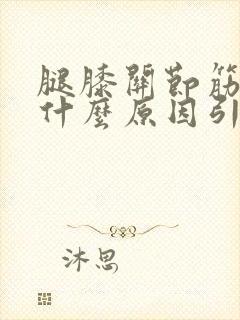 腿膝關節筋
什麼原因引
沐思